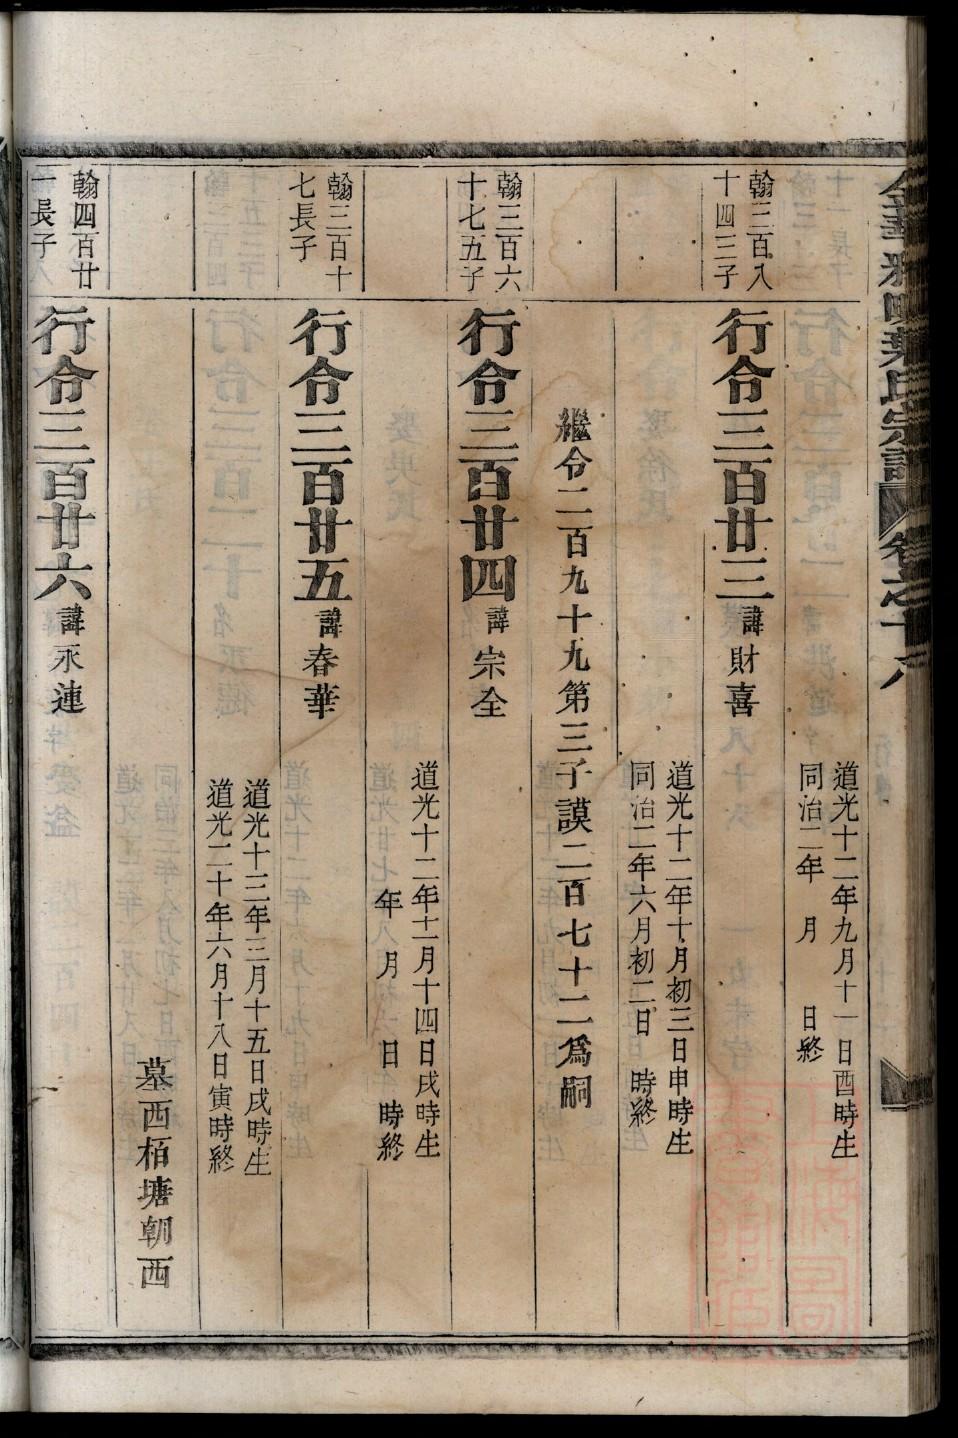 道光十二年九月十一日酉時生
同治二年 月 日終
翰三百八
十四三子
行令三百廿三 諱財喜
道光十二年十月初三日申時生
同治二年六月初二日 時終
繼令二百九十九第三子謨二百七十二爲嗣
翰三百六
十七五子
行令三百廿四 諱宗全
道光十二年十二月十四日戌時生
年 月 日 時終
翰三百十
七長子
行令三百廿五 諱春華
道光十三年三月十五日戌時生
道光二十年六月十八日寅時終
墓西栢塘朝西
翰四百廿
一長子
行令三百廿六 諱永連